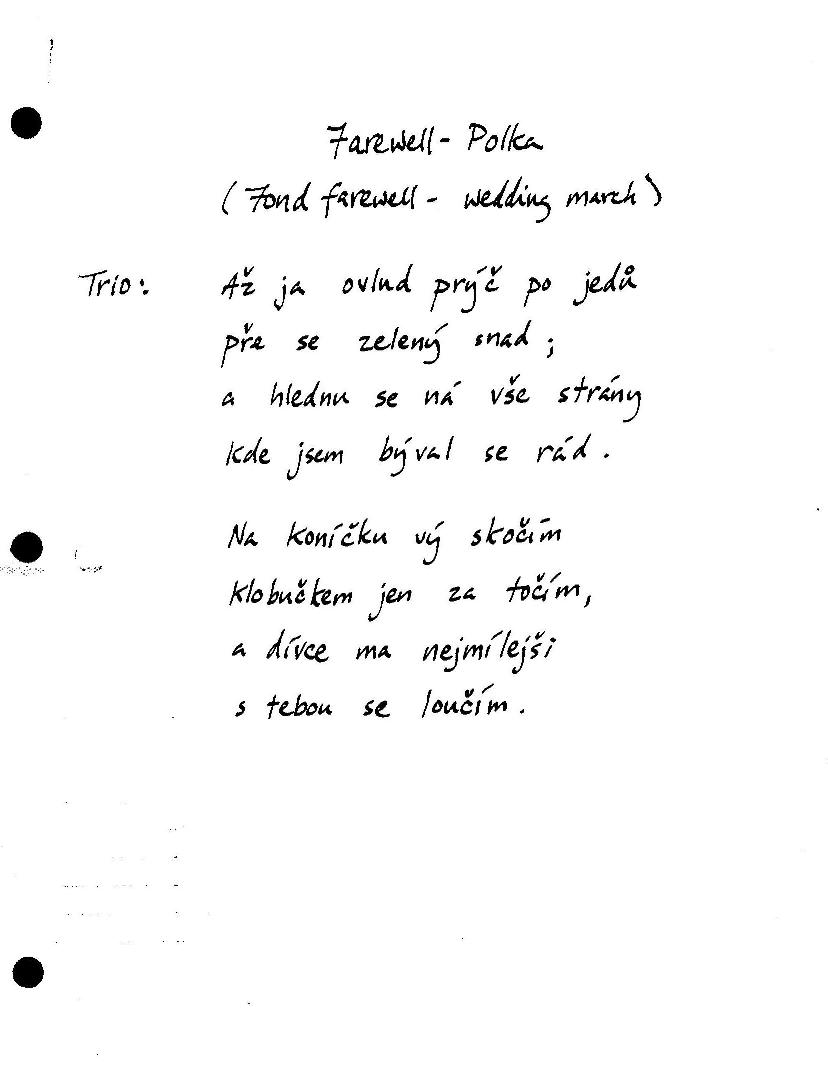 Farewell - Polka
(Fond farewell - wedding march)
Trio: Až ja ovlud prýč po jedů
pře se zelený snad ;
a hlednu se ná vše strány
kde jsem býval se rád .
Na koníčku vý skočím
klobučkem jen za točím,
a dívce ma nejmílejši
s tebou se loučím .